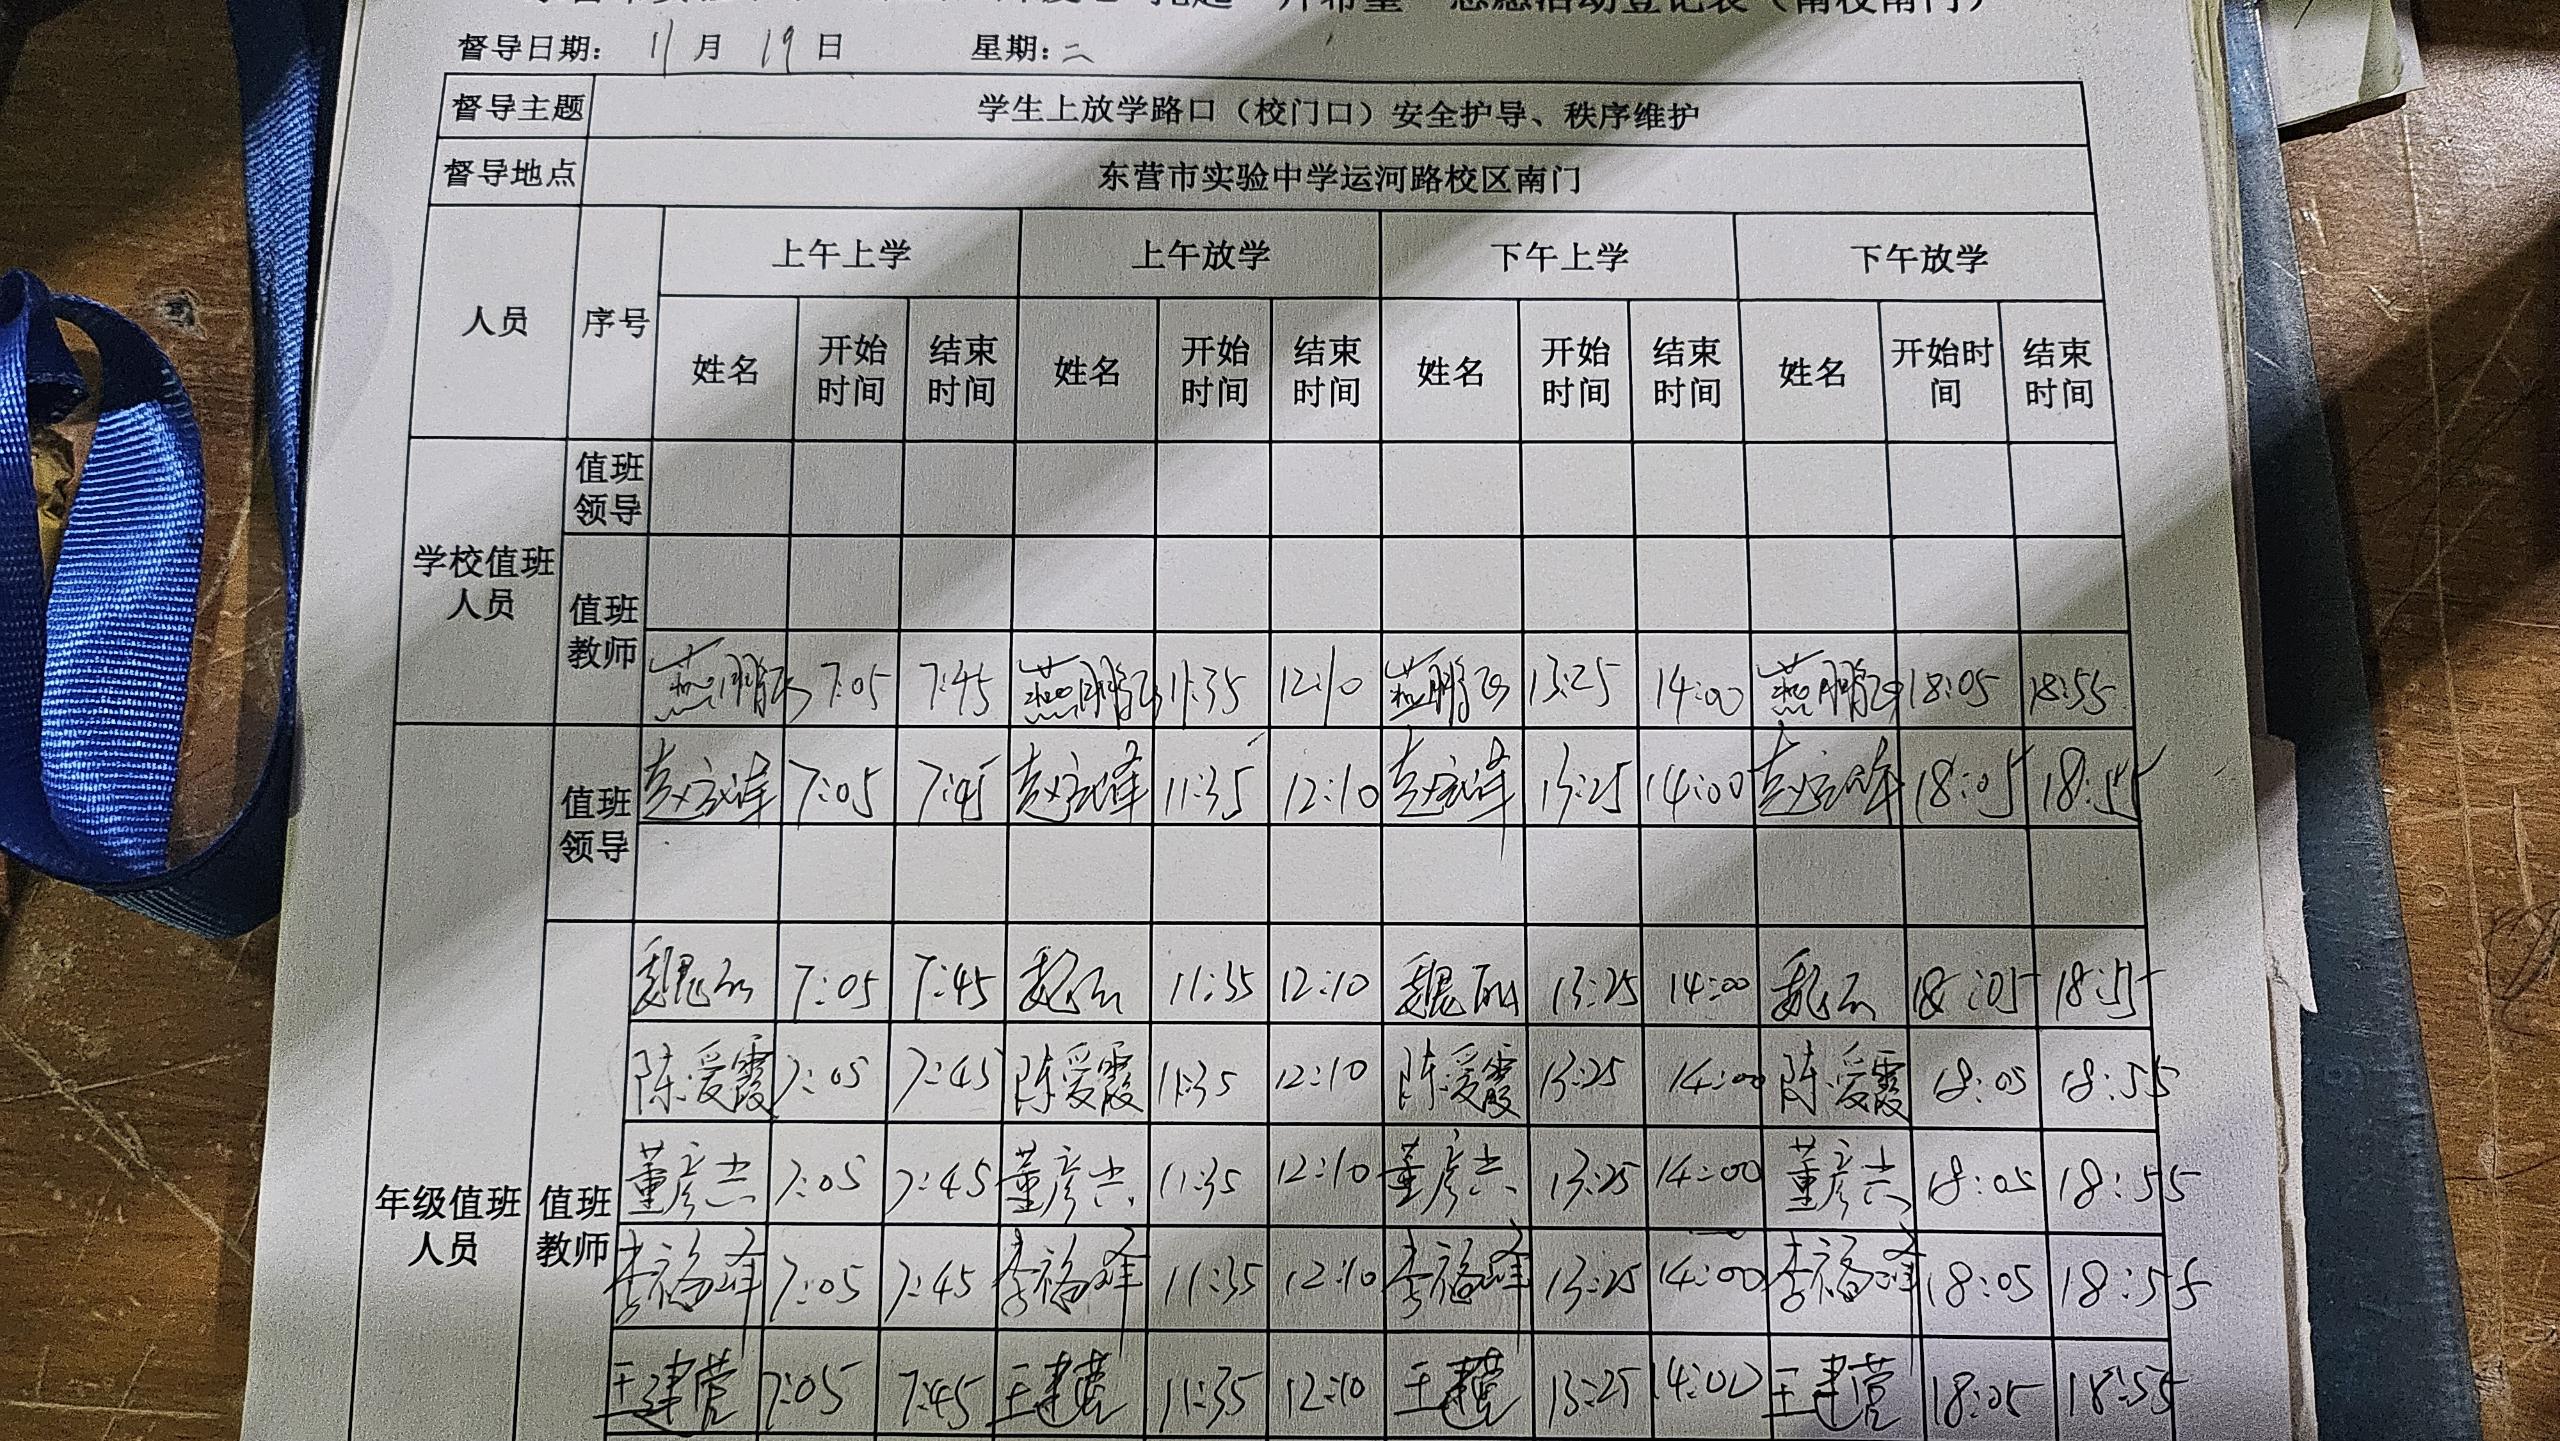 督导日期： 11月 19日 星期：二
督导主题 学生上放学路口（校门口）安全护导、秩序维护
督导地点 东营市实验中学运河路校区南门
人员 序号 上午上学 上午放学 下午上学 下午放学
姓名 开始时间 结束时间 姓名 开始时间 结束时间 姓名 开始时间 结束时间 姓名 开始时间 结束时间
学校值班人员 值班领导
值班教师
7:05 7:45 11:35 12:10 13:25 14:00 18:05 18:55
年级值班人员 值班领导 7:05 7:45 11:35 12:10 13:25 14:00 18:05 18:55
值班教师 魏 7:05 7:45 魏 11:35 12:10 魏 13:25 14:00 魏 18:05 18:55
陈爱霞 7:05 7:45 陈爱霞 11:35 12:10 陈爱霞 13:25 14:00 陈爱霞 18:05 18:55
董彦 7:05 7:45 董彦 11:35 12:10 董彦 13:25 14:00 董彦 18:05 18:55
李福峰 7:05 7:45 李福峰 11:35 12:10 李福峰 13:25 14:00 李福峰 18:05 18:55
王建营 7:05 7:45 王建营 11:35 12:10 王建营 13:25 14:00 王建营 18:05 18:55